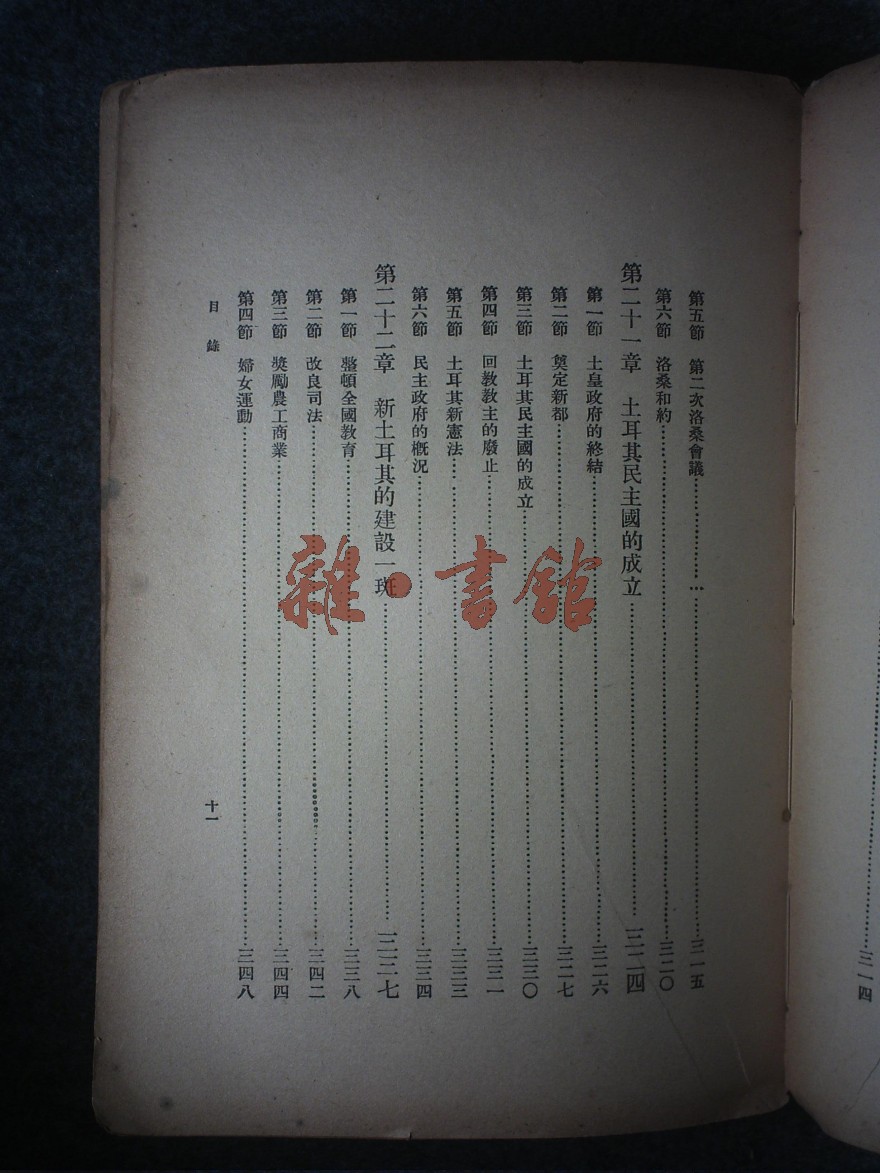 第五節　第二次洛桑會議……三一五
第六節　洛桑和約……三二〇
第二十一章　土耳其民主國的成立……三二四
第一節　土皇政府的終結……三二六
第二節　奠定新都……三二七
第三節　土耳其民主國的成立……三三〇
第四節　回教教主的廢止……三三一
第五節　土耳其新憲法……三三三
第六節　民主政府的概況……三三四
第二十二章　新土耳其的建設一斑……三三七
第一節　整頓全國教育……三三八
第二節　改良司法……三四二
第三節　獎勵農工商業……三四四
第四節　婦女運動……三四八
目錄
十一
三一四
雜·書館